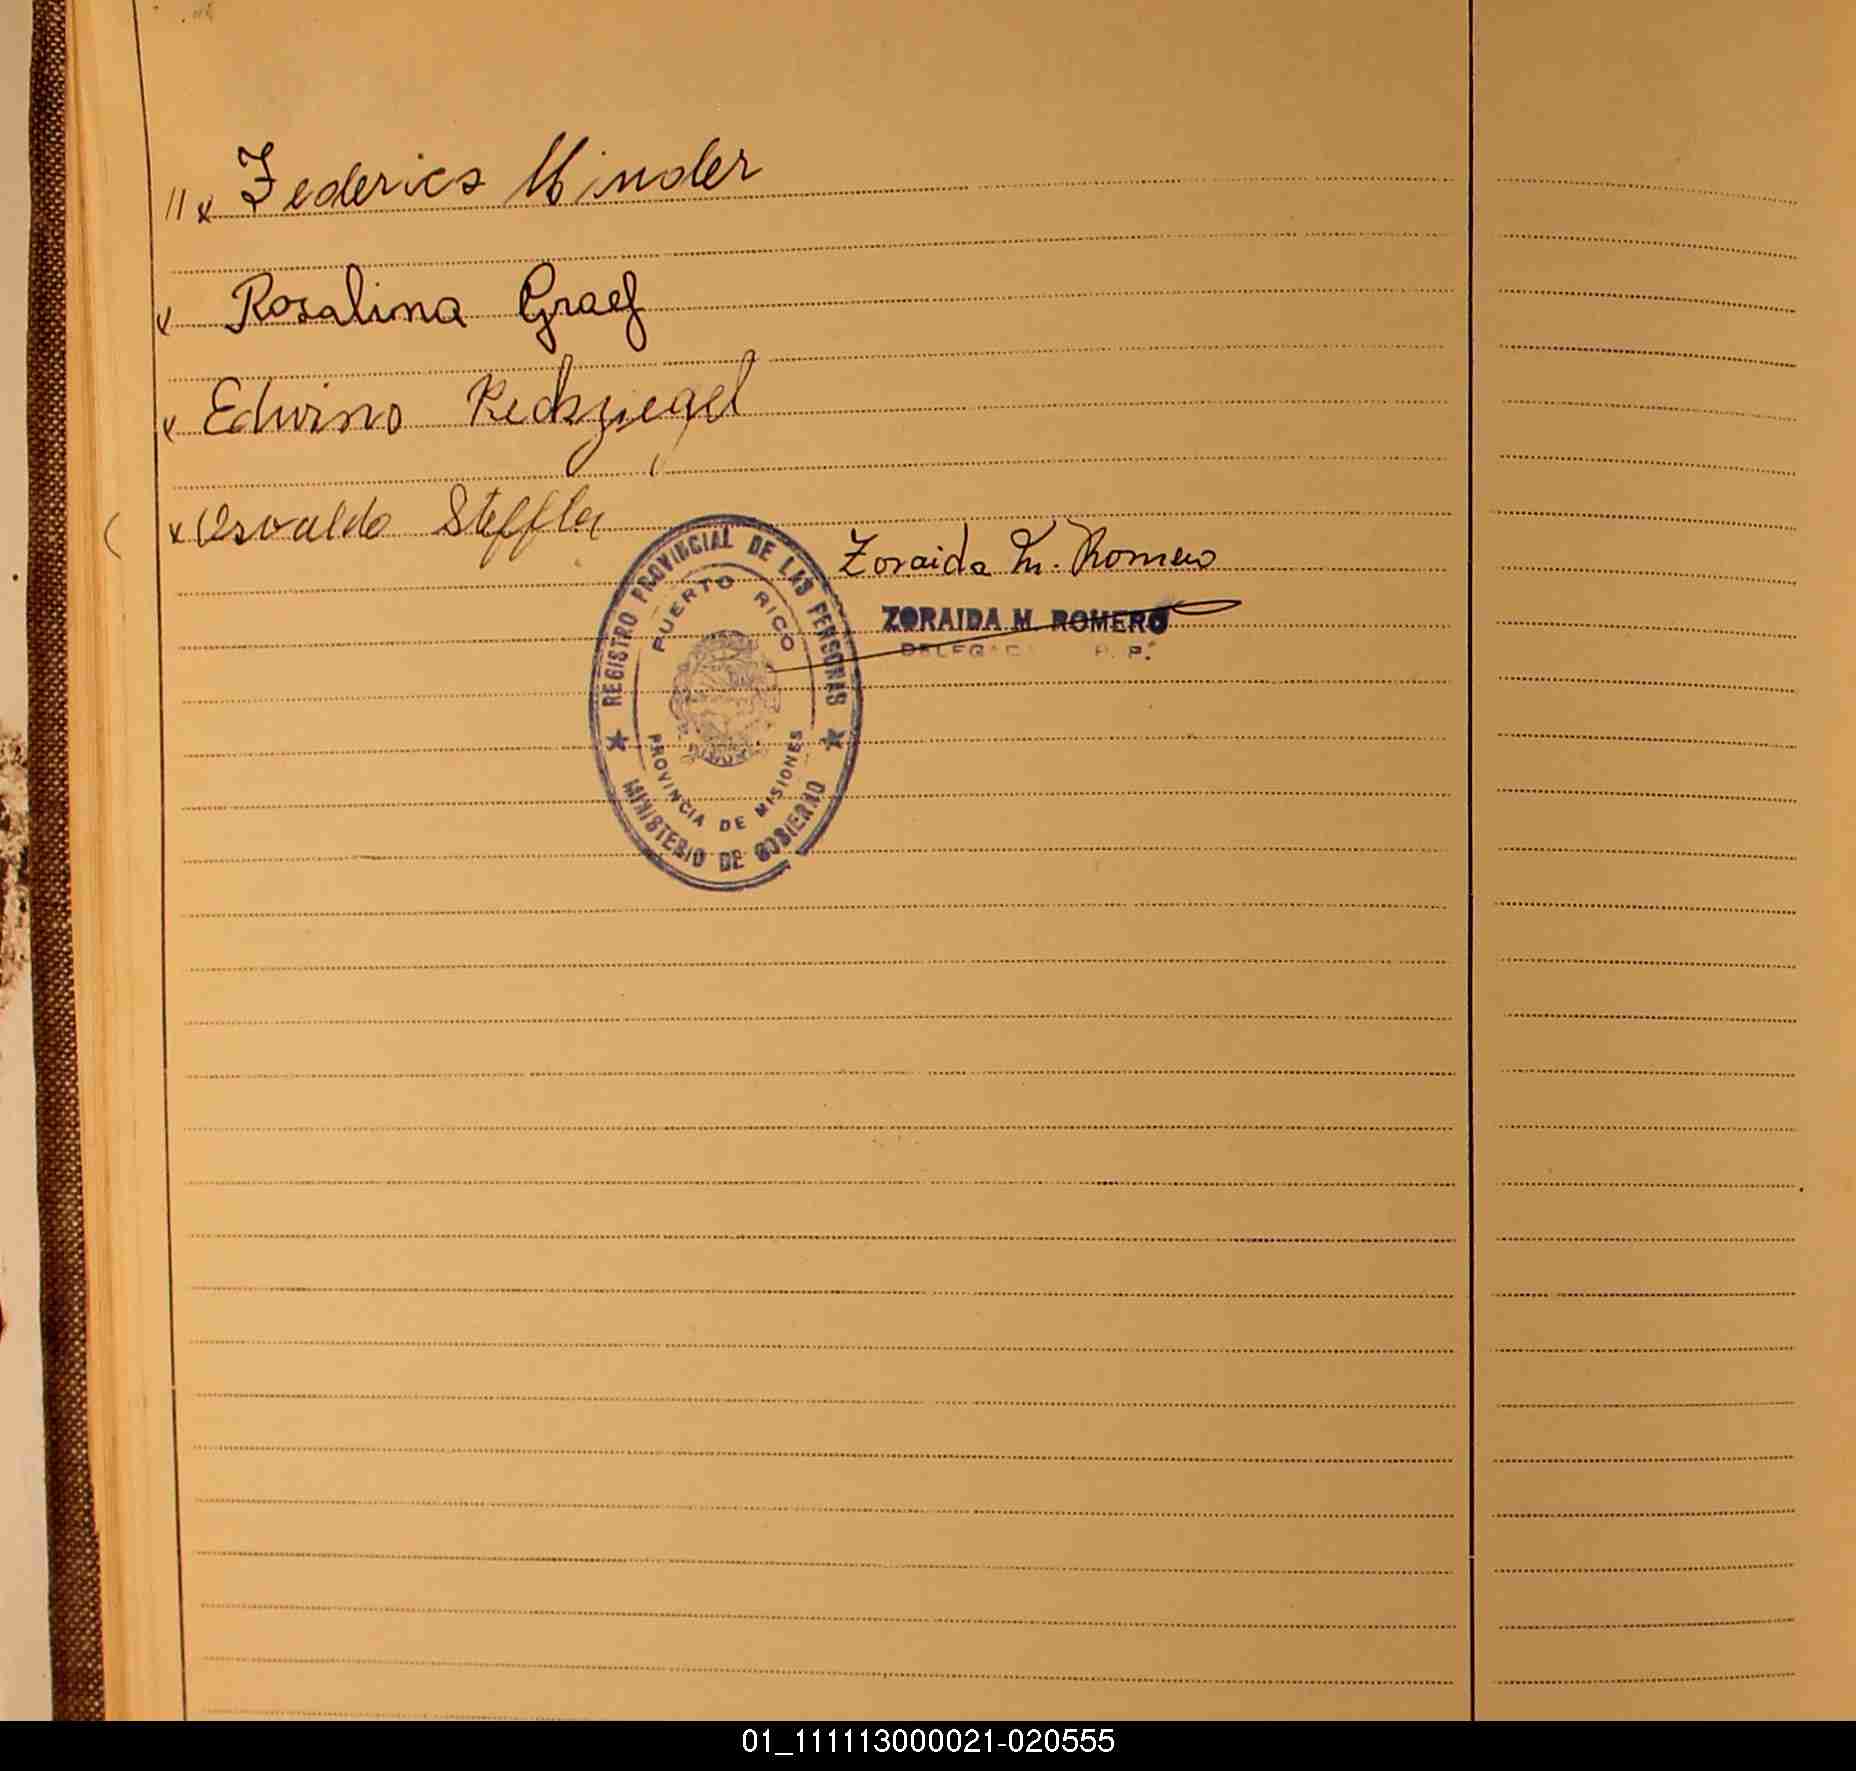 Federico Minder
Rosalina Graef
Edwino Reckziegel
Osvaldo Steffler
Zoraida M. Romero
ZORAIDA M. ROMERO
REGISTRO PROVINCIAL DE LAS PERSONAS
PUERTO RICO
PROVINCIA DE MISIONES
MINISTERIO DE GOBIERNO
01_111113000021-020555